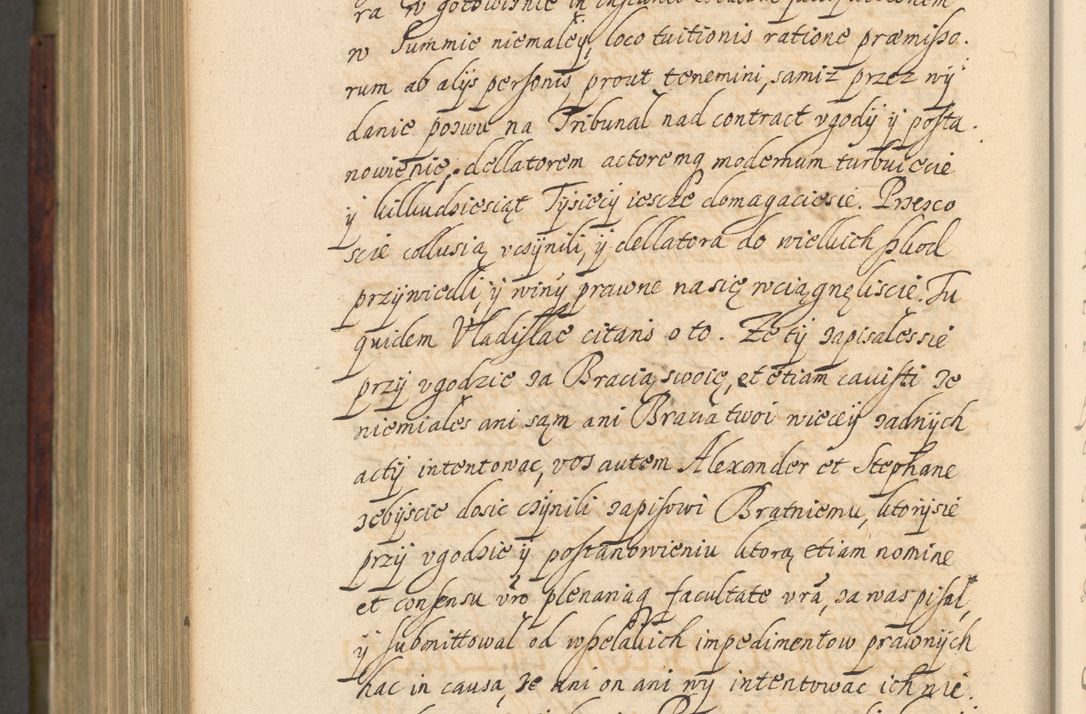 ra w gotowiźnie in instanti
w Summie niemałey, loco tuitionis ratione præmisso.
rum ab alijs personis, prout tenemini, sami z przez wy
danie pozwu na Tribunal nad contract vgody ÿ posta.
nowienie, dellatorem actoremq modernum turbuiecie
ÿ kilkudziesiąt Tysięcÿ ieszcze domagaciesie. Przezco
scie collusią vczÿnili, ÿ dellatora do wielkich szkod
przÿwiedli, ÿ winÿ prawne na się wciągnęliscie. Tu
quidem Vladislae citaris o to. Że tÿ zapisałes sie
przÿ vgodzie za Bracią swoię, et etiam cavisti że
niemiałes ani sąm ani Bracia twoi wiecēÿ żadnÿch
actÿ intentowac, vos autem Alexander et Stephane
żebÿscie dosic czÿnili zapisowi Bratniemu, ktorÿ sie
przÿ vgodzie ÿ postanowieniu ktorą etiam nomine
et consensu vro plenariaq facultate vra, za was pisał,
ÿ submittował od wszelakich impedimentow prawnÿch
hac in causa, że ani on ani wÿ intentowac ich nie.